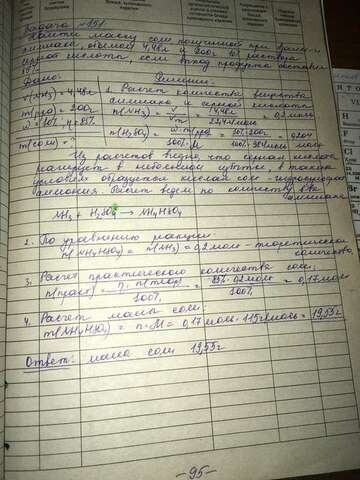 Задача №151
Найти массу соли полученной при взаим-и
аммиака, объемом 4,48л и 200г 10% раствора
серной кислоты, если выход продукта составил
85%
Дано: Решение:
v(NH₃) = 4,48л 1. Расчет количества вещества
m(рра) = 200г аммиака и серной кислоты
ω = 10% η = 85% n(NH₃) = V/Vm = 4,48л/22,4л/моль = 0,2 моль
m(соли) = ? n(H₂SO₄) = ω·m(рра)/100%·M = 10%·200г/100%·98г/моль = 0,204 моль
Из расчетов видно, что серная кислота
реагирует в небольшом избытке, в таких
условиях образуется кислая соль - гидросульфат
аммония. Расчет ведем по количеству в-ва
аммиака
NH₃ + H₂SO₄ → NH₄HSO₄
2. По уравнению реакции:
n(NH₄HSO₄) = n(NH₃) = 0,2 моль - теоретическое
количество
3. Расчет практического количества соли:
n(прак) = η·n(теор)/100% = 85%·0,2моль/100% = 0,17моль
4. Расчет массы соли:
m(NH₄HSO₄) = n·M = 0,17моль·115г/моль = 19,55г
Ответ: масса соли 19,55г
-95-